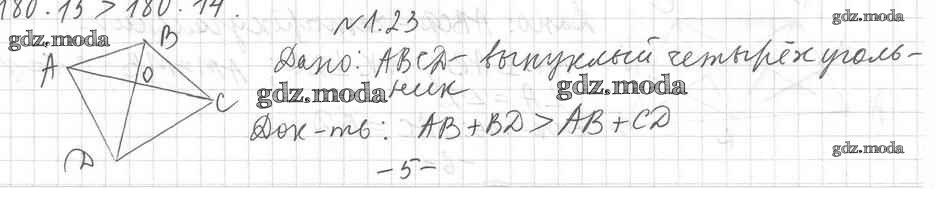 180·13 > 180·14.
№1.23
gdz.moda
gdz.moda
A B O C D
Дано: ABCD - выпуклый четырёхуголь-
ник
gdz.moda
gdz.moda
Док-ть: AB + BD > AB + CD
gdz.moda
-5-